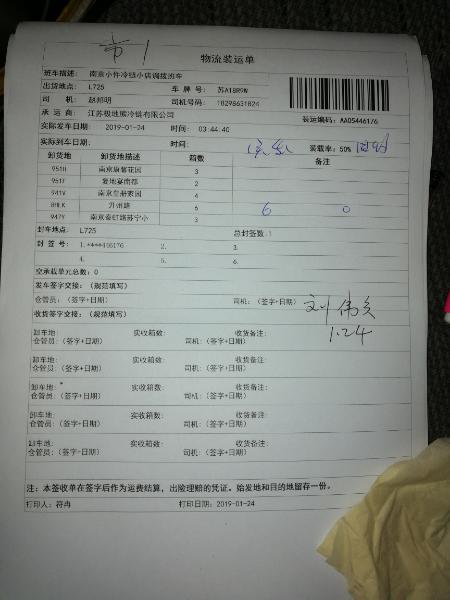 物流装运单
班车描述： 南京小件冷链小店调拨班车
出货地点： L725 车 牌 号： 苏A18R9W
司 机： 赵邦明 司机号码： 18298631824
承 运 商： 江苏极地熊冷链有限公司 装运编码： AA05446176
实际发车日期： 2019-01-24 时间： 03:44:40
实际到车日期： 时间： 装载率：50%
卸货地 卸货地描述 箱数 备注
951H 南京康馨花园 3
951F 复地宴南都 2
941V 南京皇册家园 4
8HLK 升州路 6 6 0
947Y 南京秦虹路苏宁小 3
封车地点： L725 总封签数：1
封 签 号： 1.****446176 2. 3.
4. 5. 6.
空承载单元总数：0
发车签字交接：（规范填写）
仓管员：（签字+日期） 司机：（签字+日期） 刘伟
收货签字交接：（规范填写） 1.24
卸车地： 实收箱数： 收货备注：
仓管员：（签字+日期） 司机：（签字+日期）
卸车地： 实收箱数： 收货备注：
仓管员：（签字+日期） 司机：（签字+日期）
卸车地： 实收箱数： 收货备注：
仓管员：（签字+日期） 司机：（签字+日期）
卸车地： 实收箱数： 收货备注：
仓管员：（签字+日期） 司机：（签字+日期）
卸车地： 实收箱数： 收货备注：
仓管员：（签字+日期） 司机：（签字+日期）
注：本签收单在签字后作为运费结算，出险理赔的凭证。始发地和目的地留存一份。
打印人：符冉 打印日期：2019-01-24